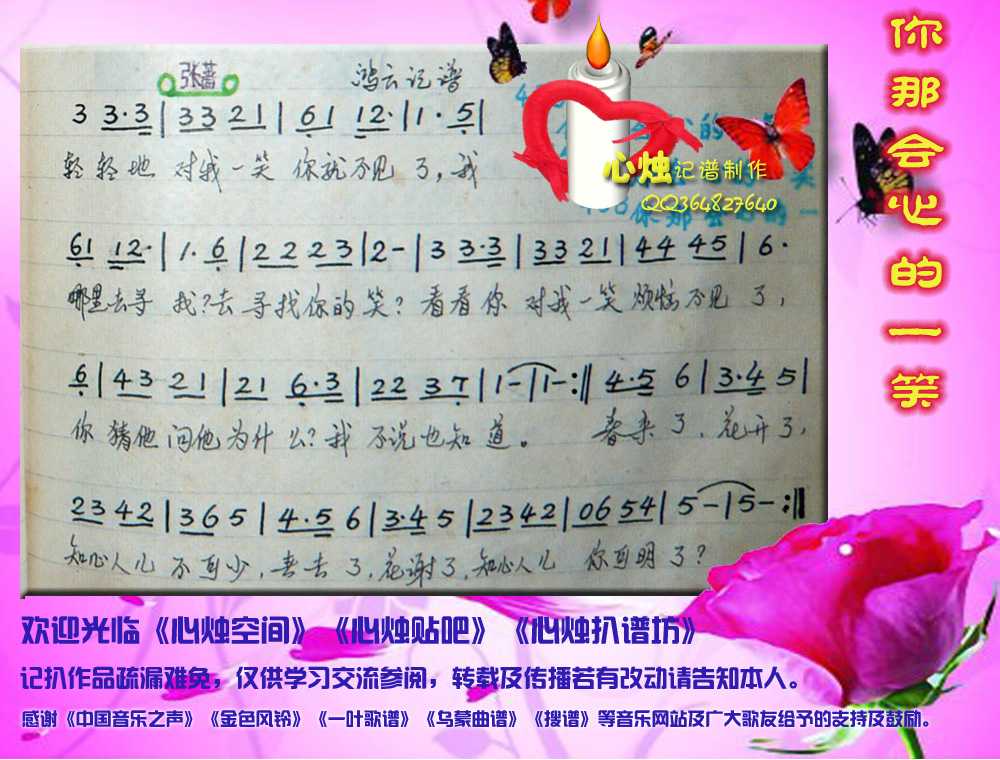 你那会心的一笑
张蔷
鸿云记谱
心烛记谱制作
QQ364827640
3 3·3 | 33 21 | 61 12· | 1· 5 |
轻轻地 对我一笑 你就不见 了,我
61 12· | 1· 6 | 22 23 | 2- | 3 3·3 | 33 21 | 44 45 | 6·
哪里去寻 我?去寻找你的笑?看看你 对我一笑 烦恼不见 了,
6 | 43 21 | 21 6·3 | 22 37 | 1- | 1- :‖ 4·5 6 | 3·4 5 |
你 猜他问他为什么?我 不说也知 道。 春来了,花开了,
23 42 | 36 5 | 4·5 6 | 3·4 5 | 23 42 | 06 54 | 5- | 5- :‖
知心人儿 不可少,春去了,花谢了,知心人儿 你可明了?
欢迎光临《心烛空间》《心烛贴吧》《心烛扒谱坊》
记扒作品疏漏难免,仅供学习交流参阅,转载及传播若有改动请告知本人。
感谢《中国音乐之声》《金色风铃》《一叶歌谱》《乌蒙曲谱》《搜谱》等音乐网站及广大歌友给予的支持及鼓励。